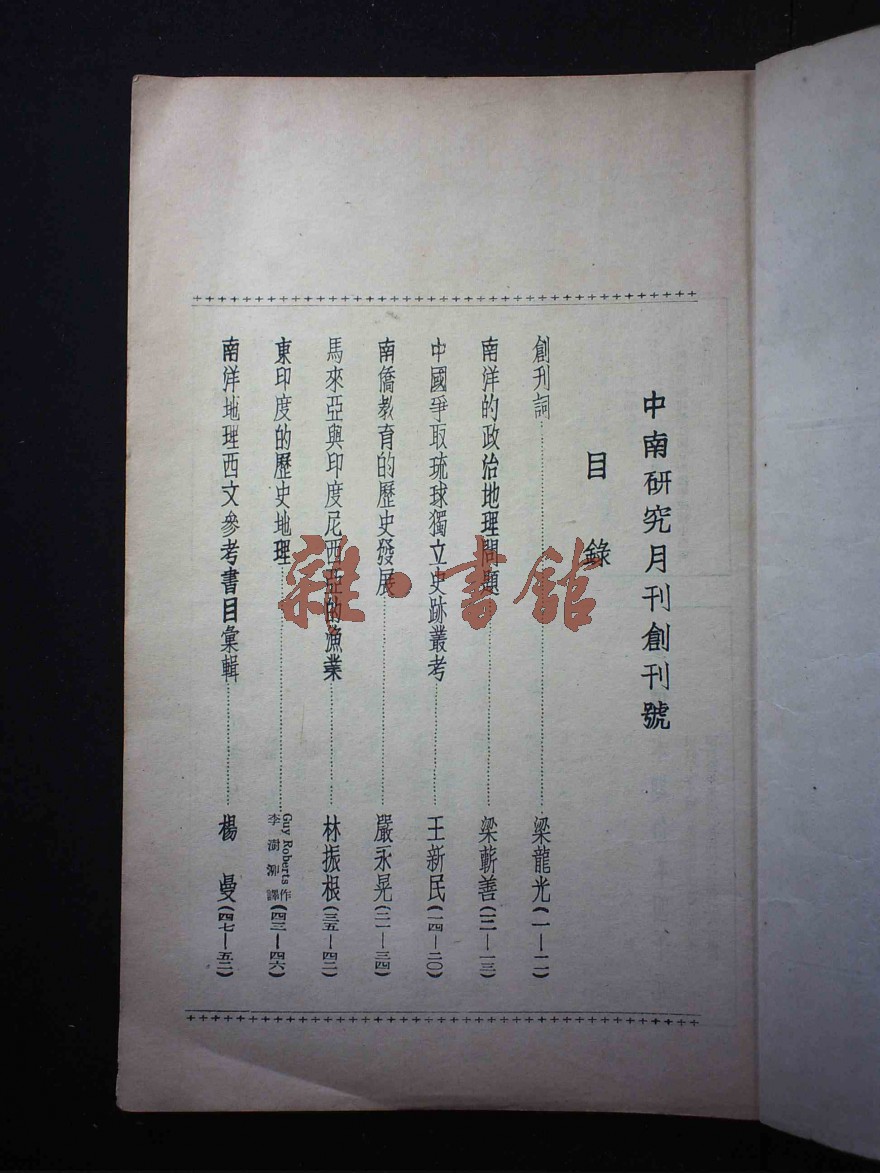 中南研究月刊創刊號
目錄
創刊詞……梁龍光(一—二)
南洋的政治地理問題……梁蘄善(三—一三)
中國爭取琉球獨立史跡叢考……王新民(一四—二〇)
南僑教育的歷史發展……嚴永晃(二一—三四)
馬來亞與印度尼西亞的漁業……林振根(三五—四二)
東印度的歷史地理……Guy Roberts作
李澍 譯(四三—四六)
南洋地理西文參考書目彙輯……楊曼(四七—五二)
雜·書館